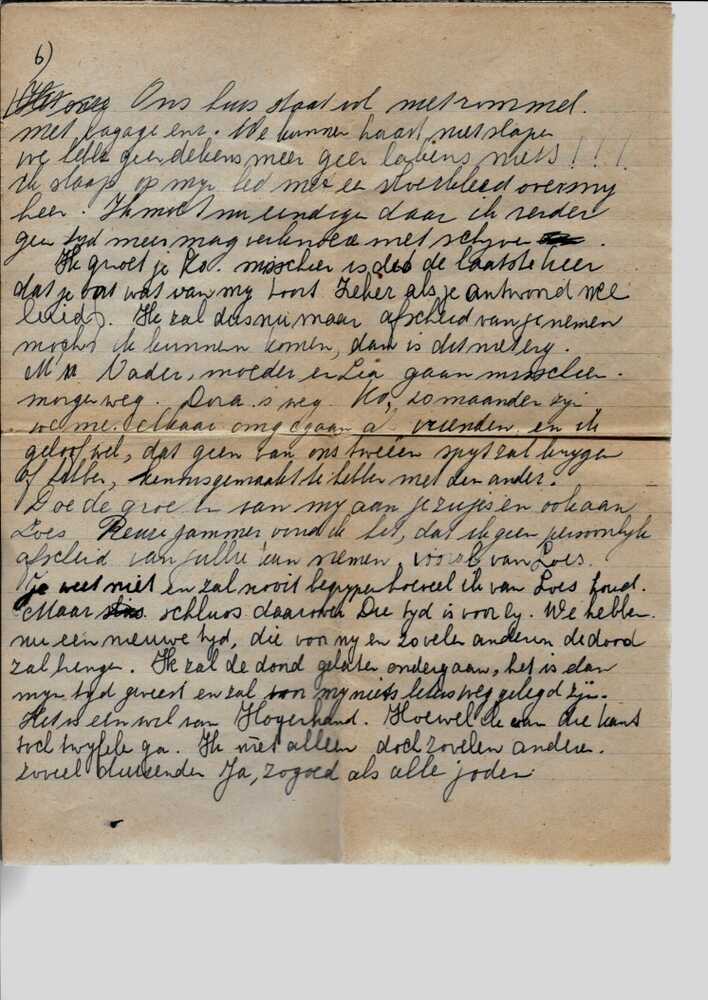 6)
Ons huis staat vol met rommel.
met bagage enz. We kunnen haast niet slapen
we hebben geen dekens meer geen lakens niets!!!
Ik slaap op myn bed met een vloerkleed over my
heen. Ik moet nu eindigen daar ik verder
geen tyd meer mag met schryven
Ik groet je Ko. misschien is dit de laatste keer
dat je ooit wat van my hoort. Zeker als je antwoord nee
luidt. Ik zal dus nu maar afscheid van je nemen
mocht ik kunnen komen, dan is dit niet erg.
M'n Vader, moeder en Lia gaan misschien
morgen weg. Dora is weg. Ko, zo maanden zyn
we me elkaar omgegaan als vrienden en ik
geloof wel, dat geen van ons tweeën spyt zal krygen
of hebben, kennisgemaakt te hebben met den ander.
Doe de groeten van my aan je zusjes en ook aan
Loes. Reuze jammer vond ik het, dat ik geen persoonlyk
afscheid van jullie kan nemen, vooral van Loes.
Je weet niet en zal nooit begrypen hoeveel ik van Loes houd.
Maar schluss daarover Die tyd is voorby. We hebben
nu een nieuwe tyd, die voor my en zovelen anderen de dood
zal brengen. Ik zal de dood gelaten ondergaan, het is dan
myn tyd geweest en zal voor my niets weggelegd zyn.
Het is een wil van Hogerhand. Hoewel ik aan die kant
toch twyfelen ga. Ik niet alleen doch zovelen anderen.
zoveel duizenden Ja, zogoed als alle joden